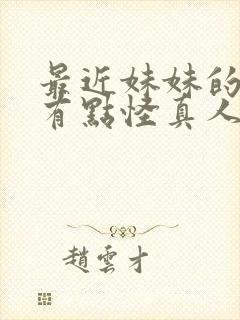 最近妹妹的
有點怪真人
趙雲才